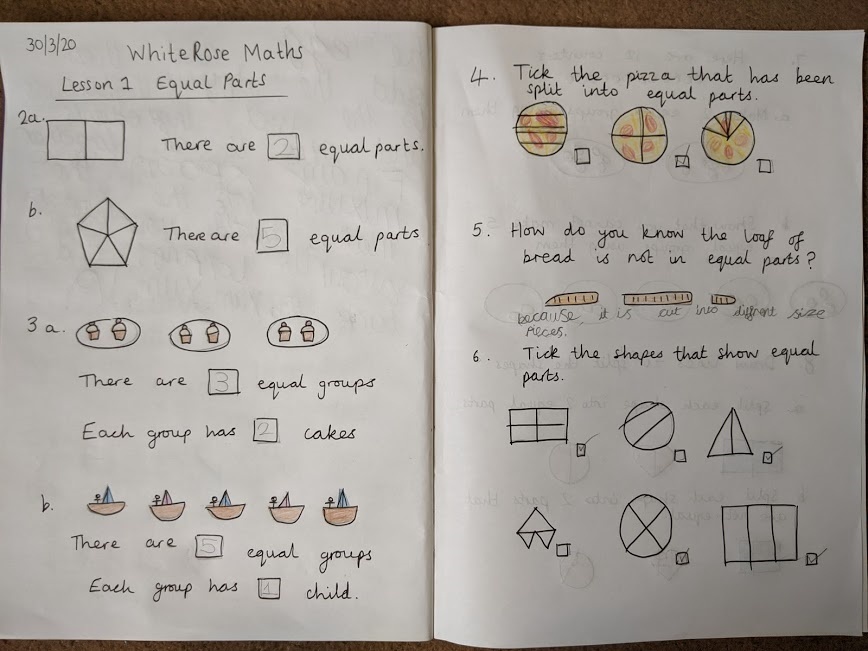 30/3/20
WhiteRose Maths
Lesson 1 Equal Parts
2a.
There are 2 equal parts.
b.
There are 5 equal parts
3a.
There are 3 equal groups
Each group has 2 cakes
b.
There are 5 equal groups
Each group has 1 child.
4. Tick the pizza that has been
split into equal parts.
5. How do you know the loaf of
bread is not in equal parts?
because it is cut into diffrent size
pieces.
6. Tick the shapes that show equal
parts.